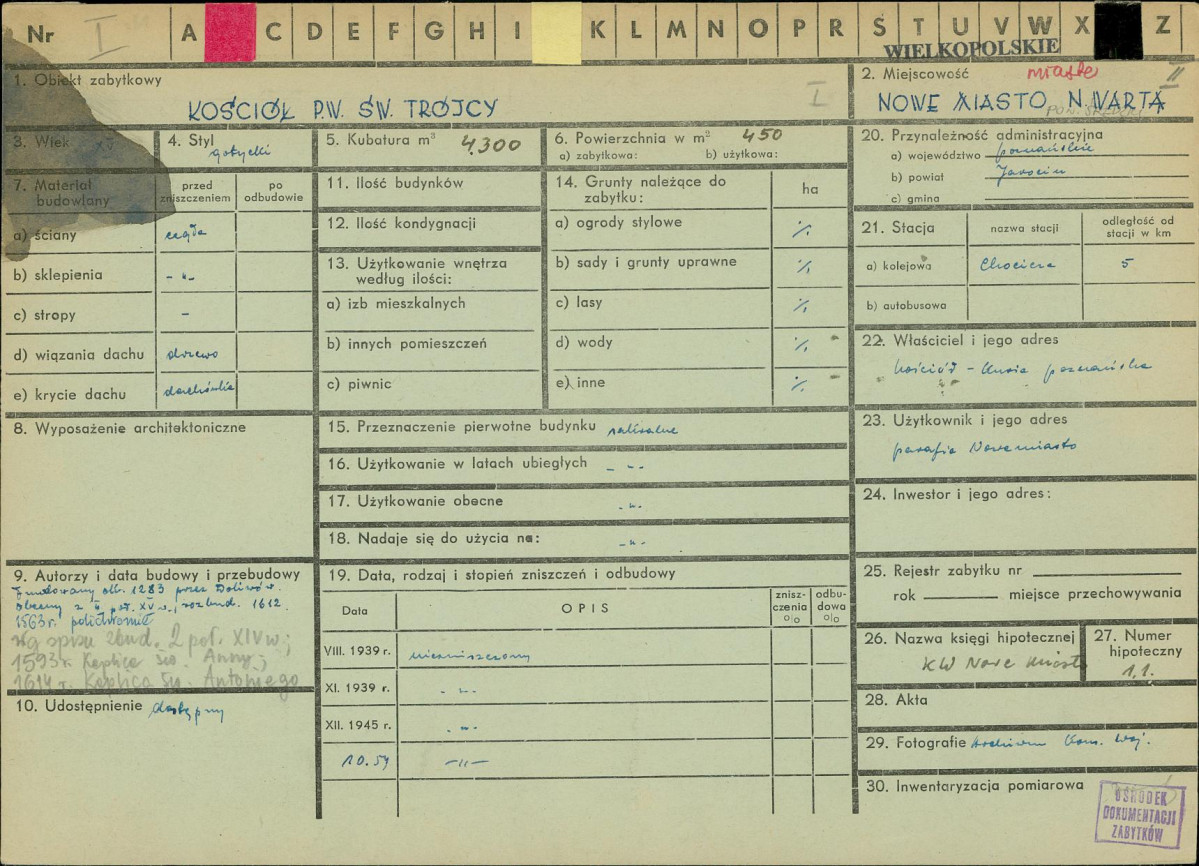 Nr I A C D E F G H I K L M N O P R S T U V W X Z
WIELKOPOLSKIE
1. Obiekt zabytkowy
KOŚCIÓŁ P.W. ŚW. TRÓJCY
I
2. Miejscowość miasto II
NOWE MIASTO N.WARTĄ
3. Wiek XV
4. Styl
gotycki
5. Kubatura m³ 4.300
6. Powierzchnia w m² 450
a) zabytkowa: b) użytkowa:
7. Materiał budowlany
przed zniszczeniem
po odbudowie
a) ściany cegła
b) sklepienia - „ -
c) stropy -
d) wiązania dachu drzewo
e) krycie dachu dachówka
8. Wyposażenie architektoniczne
9. Autorzy i data budowy i przebudowy
Fundowany ok. 1283 przez Doliwów.
Obecny z II poł. XV w., rozbud. 1612.
1563r. polichromie
wg spisu zbud. 2 poł. XIV w;
1593 r. Kaplica św. Anny;
1614 r. Kaplica Św. Antoniego
10. Udostępnienie dostępny
11. Ilość budynków
12. Ilość kondygnacji
13. Użytkowanie wnętrza
według ilości:
a) izb mieszkalnych
b) innych pomieszczeń
c) piwnic
14. Grunty należące do
zabytku:
ha
a) ogrody stylowe ./.
b) sady i grunty uprawne ./.
c) lasy ./.
d) wody ./.
e) inne ./.
15. Przeznaczenie pierwotne budynku sakralne
16. Użytkowanie w latach ubiegłych - „ -
17. Użytkowanie obecne - „ -
18. Nadaje się do użycia na: - „ -
19. Data, rodzaj i stopień zniszczeń i odbudowy
Data
OPIS
znisz-
czenia
o|o
odbu-
dowa
o|o
VIII. 1939 r. niezniszczony
XI. 1939 r. - „ -
XII. 1945 r. - „ -
10.59 - „ -
20. Przynależność administracyjna
a) województwo poznańskie
b) powiat Jarocin
c) gmina
21. Stacja
nazwa stacji
odległość od
stacji w km
a) kolejowa Chocicza 5
b) autobusowa
22. Właściciel i jego adres
Kościół - Kuria poznańska
23. Użytkownik i jego adres
parafia Nowe miasto
24. Inwestor i jego adres:
25. Rejestr zabytku nr
rok miejsce przechowywania
26. Nazwa księgi hipotecznej
KW Nowe Miasto
27. Numer
hipoteczny
1,1.
28. Akta
29. Fotografie Archiwum Kons. Woj.
30. Inwentaryzacja pomiarowa
OŚRODEK
DOKUMENTACJI
ZABYTKÓW